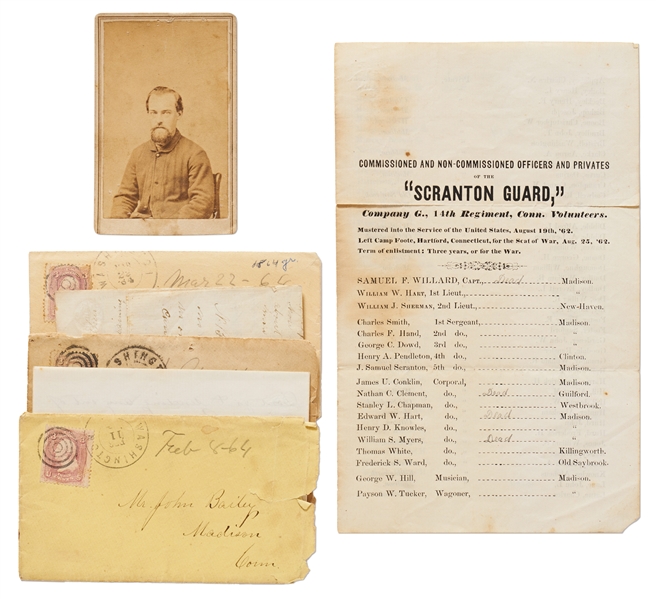 COMMISSIONED AND NON-COMMISSIONED OFFICERS AND PRIVATES
OF THE
"SCRANTON GUARD,"
Company G., 14th Regiment, Conn. Volunteers.
Mustered into the Service of the United States, August 19th, '62.
Left Camp Foote, Hartford, Connecticut, for the Seat of War, Aug. 25, '62.
Term of enlistment; Three years, or for the War.
SAMUEL F. WILLARD, CAPT., Dead Madison.
WILLIAM W. HART, 1st Lieut., "
WILLIAM J. SHERMAN, 2nd Lieut., New-Haven.
Charles Smith, 1st Sergeant, Madison.
Charles F. Hand, 2nd do., "
George C. Dowd, 3rd do., "
Henry A. Pendleton, 4th do., Clinton.
J. Samuel Scranton, 5th do., Madison.
James U. Conklin, Corporal, Madison.
Nathan C. Clement, do., Dead Guilford.
Stanley L. Chapman, do., Westbrook.
Edward W. Hart, do., Dead Madison.
Henry D. Knowles, do., "
William S. Myers, do., Dead "
Thomas White, do., Killingworth.
Frederick S. Ward, do., Old Saybrook.
George W. Hill, Musician, Madison.
Payson W. Tucker, Wagoner, "
1864
Mar 22-64
SHINGT
WASHINGTO
FEB
11
Feb 8-64
Mr John Bailey
Madison
Conn